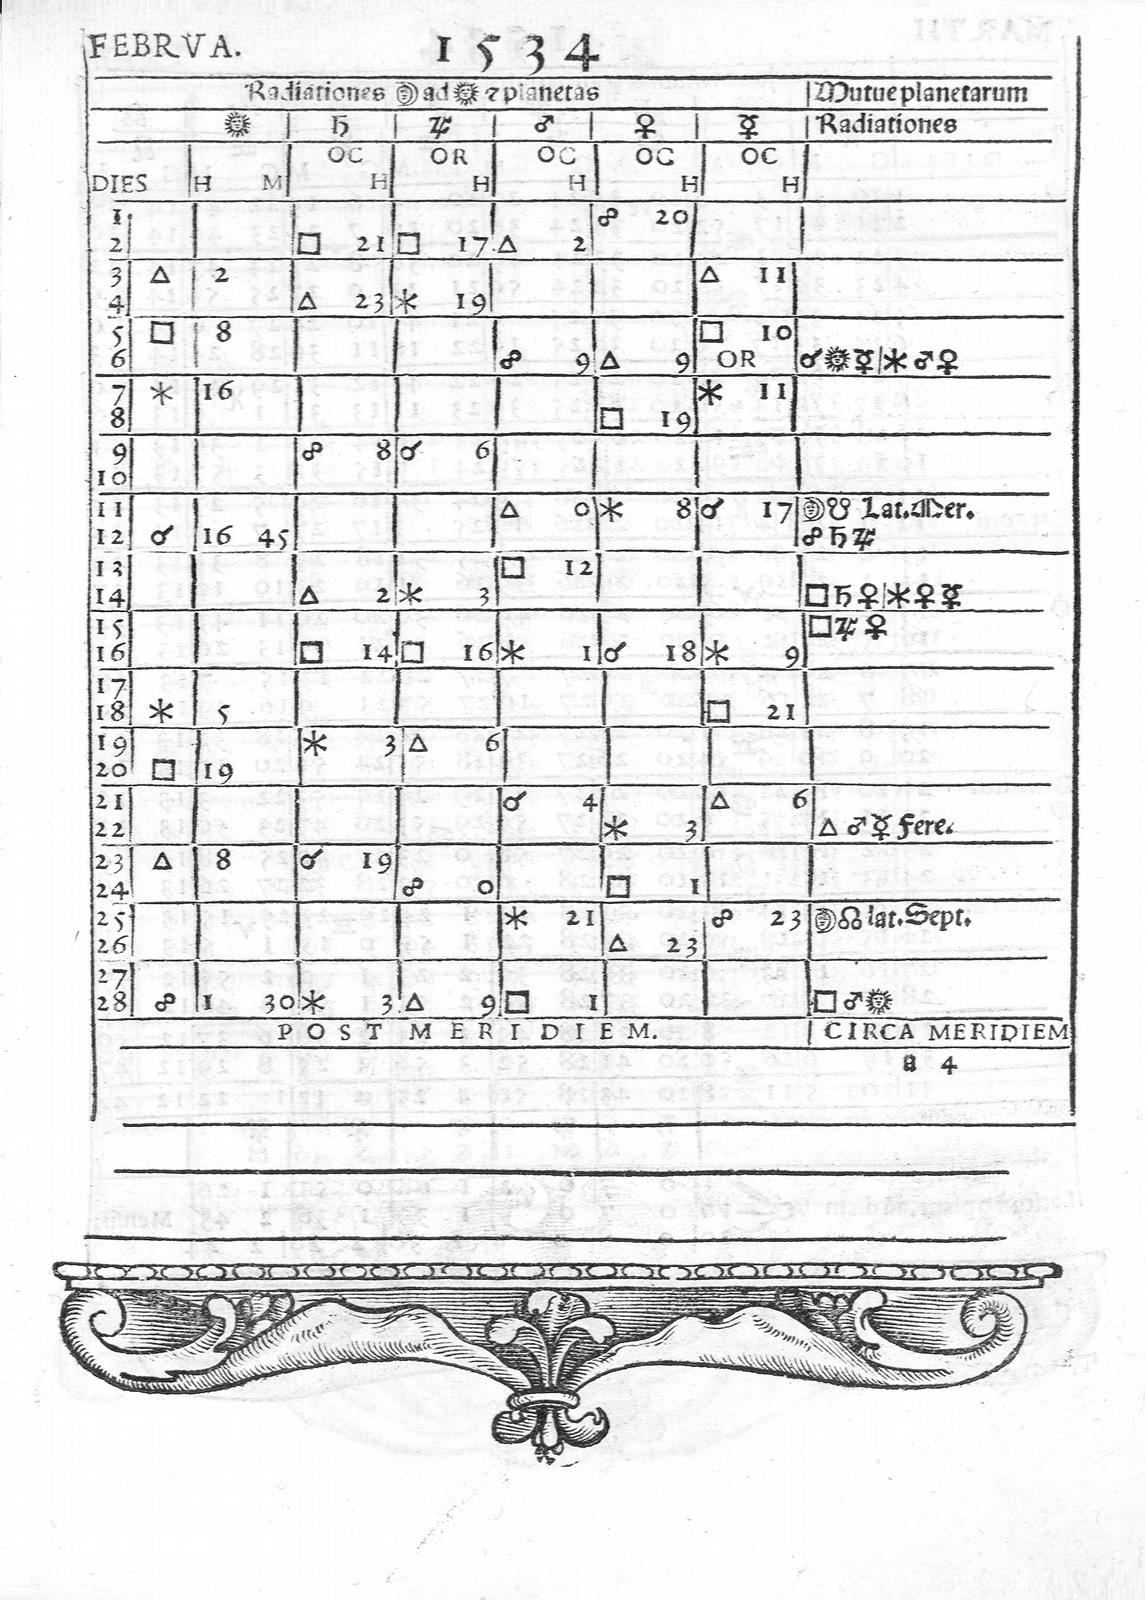 FEBRVA. 1534
Radiationes ☽ ad ☉ ⁊ planetas | Mutue planetarum
☉ | ♄ | ♃ | ♂ | ♀ | ☿ | Radiationes
OC OR OC OC OC
DIES H M H H H H H
1 ☍ 20
2 □ 21 □ 17 △ 2
3 △ 2 △ 11
4 △ 23 ⚹ 19
5 □ 8 □ 10
6 ☍ 9 △ 9 OR ☌☉☿|⚹♂♀
7 ⚹ 16 ⚹ 11
8 □ 19
9 ☍ 8 ☌ 6
10
11 △ 0 ⚹ 8 ☌ 17 ☽☋ Lat. Mer.
12 ☌ 16 45 ☍♄♃
13 □ 12
14 △ 2 ⚹ 3 □♄♀|⚹♀☿
15 □♃♀
16 □ 14 □ 16 ⚹ 1 ☌ 18 ⚹ 9
17
18 ⚹ 5 □ 21
19 ⚹ 3 △ 6
20 □ 19
21 ☌ 4 △ 6
22 ⚹ 3 △♂☿ Fere.
23 △ 8 ☌ 19
24 ☍ 0 □ 1
25 ⚹ 21 ☍ 23 ☽☊ lat. Sept.
26 △ 23
27
28 ☍ 1 30 ⚹ 3 △ 9 □ 1 □♂☉
POST MERIDIEM. | CIRCA MERIDIEM
a 4